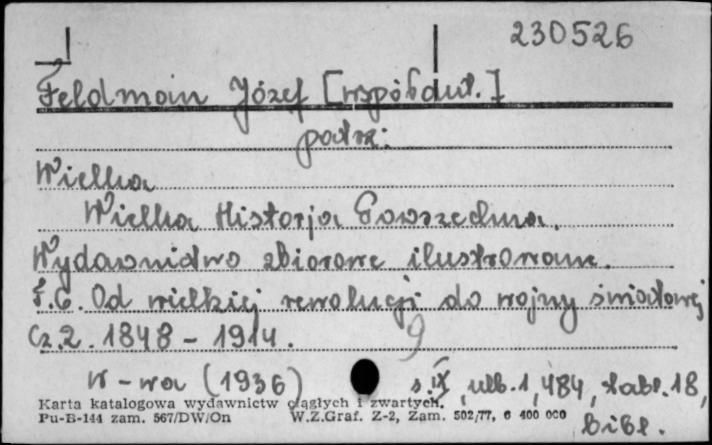 230526
Feldman Józef [współaut.]
patrz:
Wielka
Wielka Historja Powszechna.
Wydawnictwo zbiorowe ilustrowane.
T.6. Od wielkiej rewolucji do wojny światowej
Cz.2. 1848 - 1914.
W-wa (1936) s. IX, ulb. 1, 484, tabl. 18,
bibl.
Karta katalogowa wydawnictw ciągłych i zwartych.
Pu-B-144 zam. 567/DW/On W.Z.Graf. Z-2, Zam. 502/77, 6 400 000